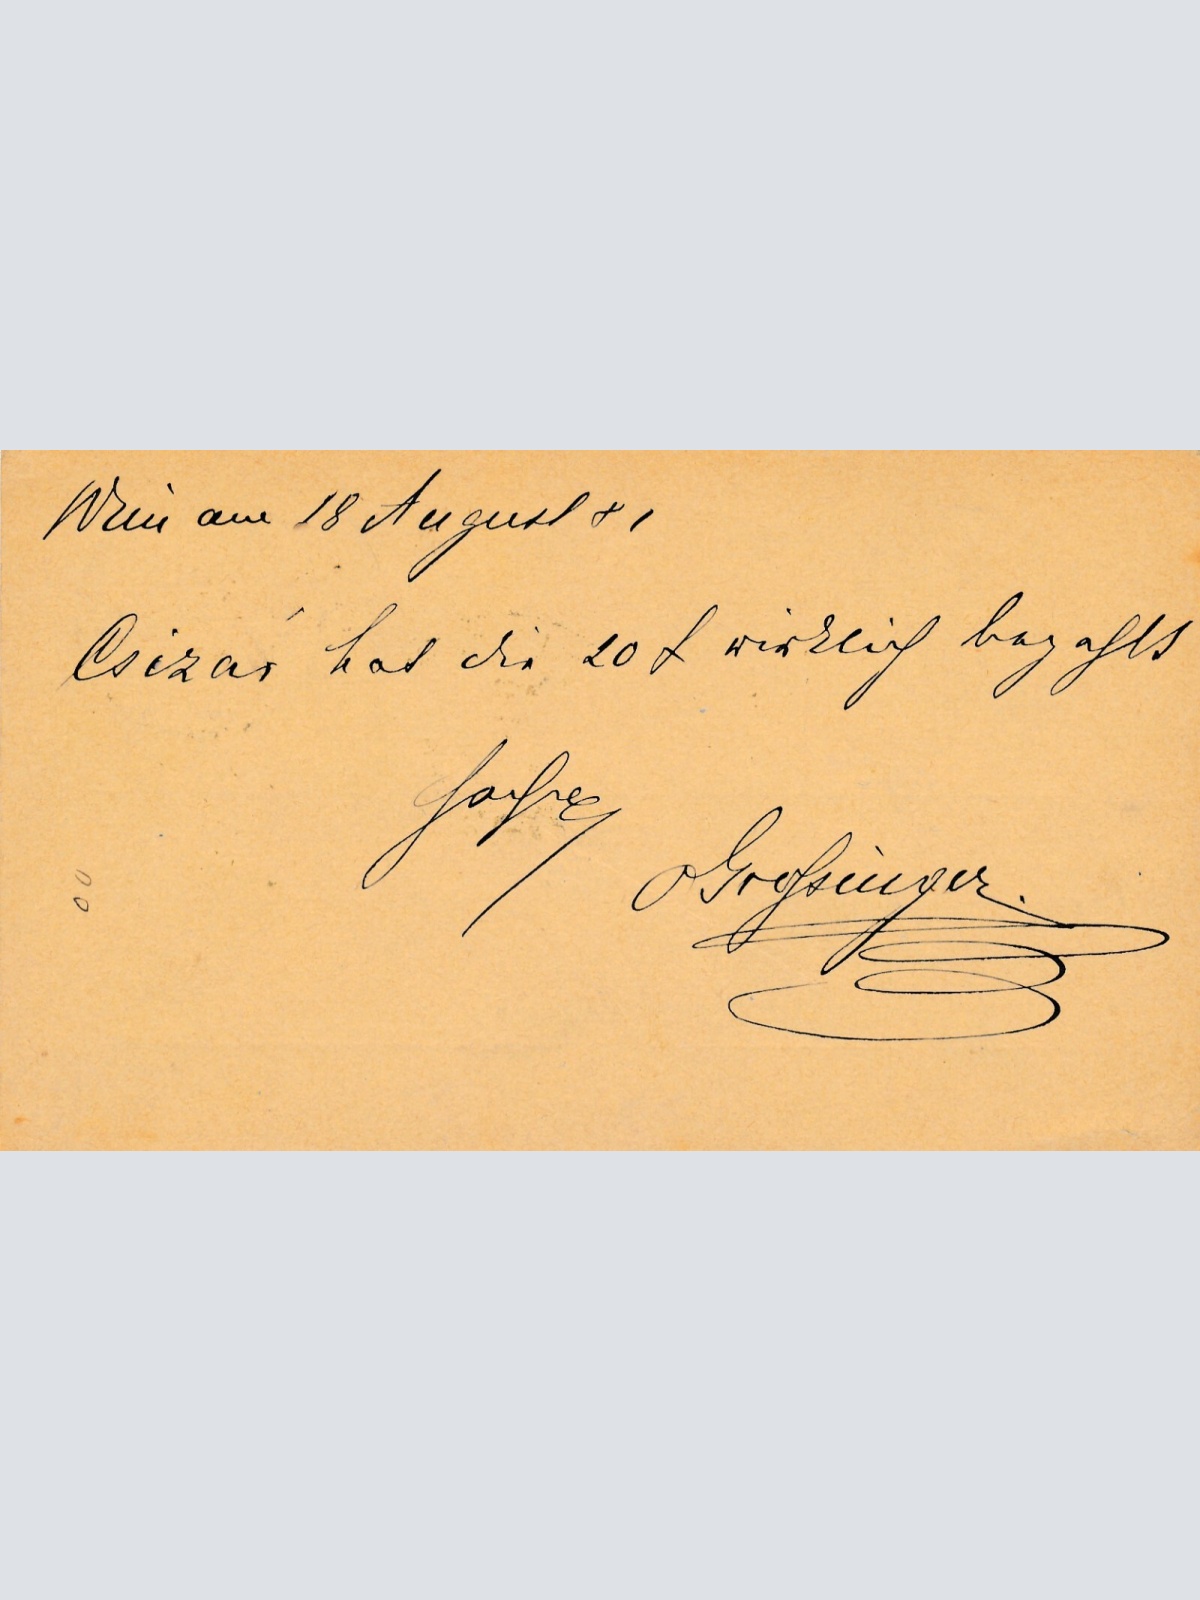 Wien am 18 August 81
Csizár hat die 20 f wirklich bezahlt
Grossinger.
00